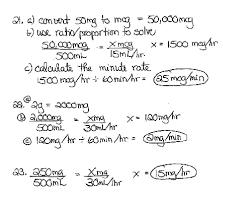 21. a) convert 50mg to mcg = 50,000mcg
b) use ratio/proportion to solve
50,000mcg / 500mL = x mcg / 15mL/hr x = 1500 mcg/hr
c) calculate the minute rate
1500 mcg/hr ÷ 60min/hr = 25mcg/min
22. a) 2g = 2000mg
b) 2,000mg / 500mL = x mg / 30mL/hr x = 120mg/hr
c) 120mg/hr ÷ 60min/hr = 2mg/min
23. 250mg / 500mL = x mg / 30mL/hr x = 15mg/hr